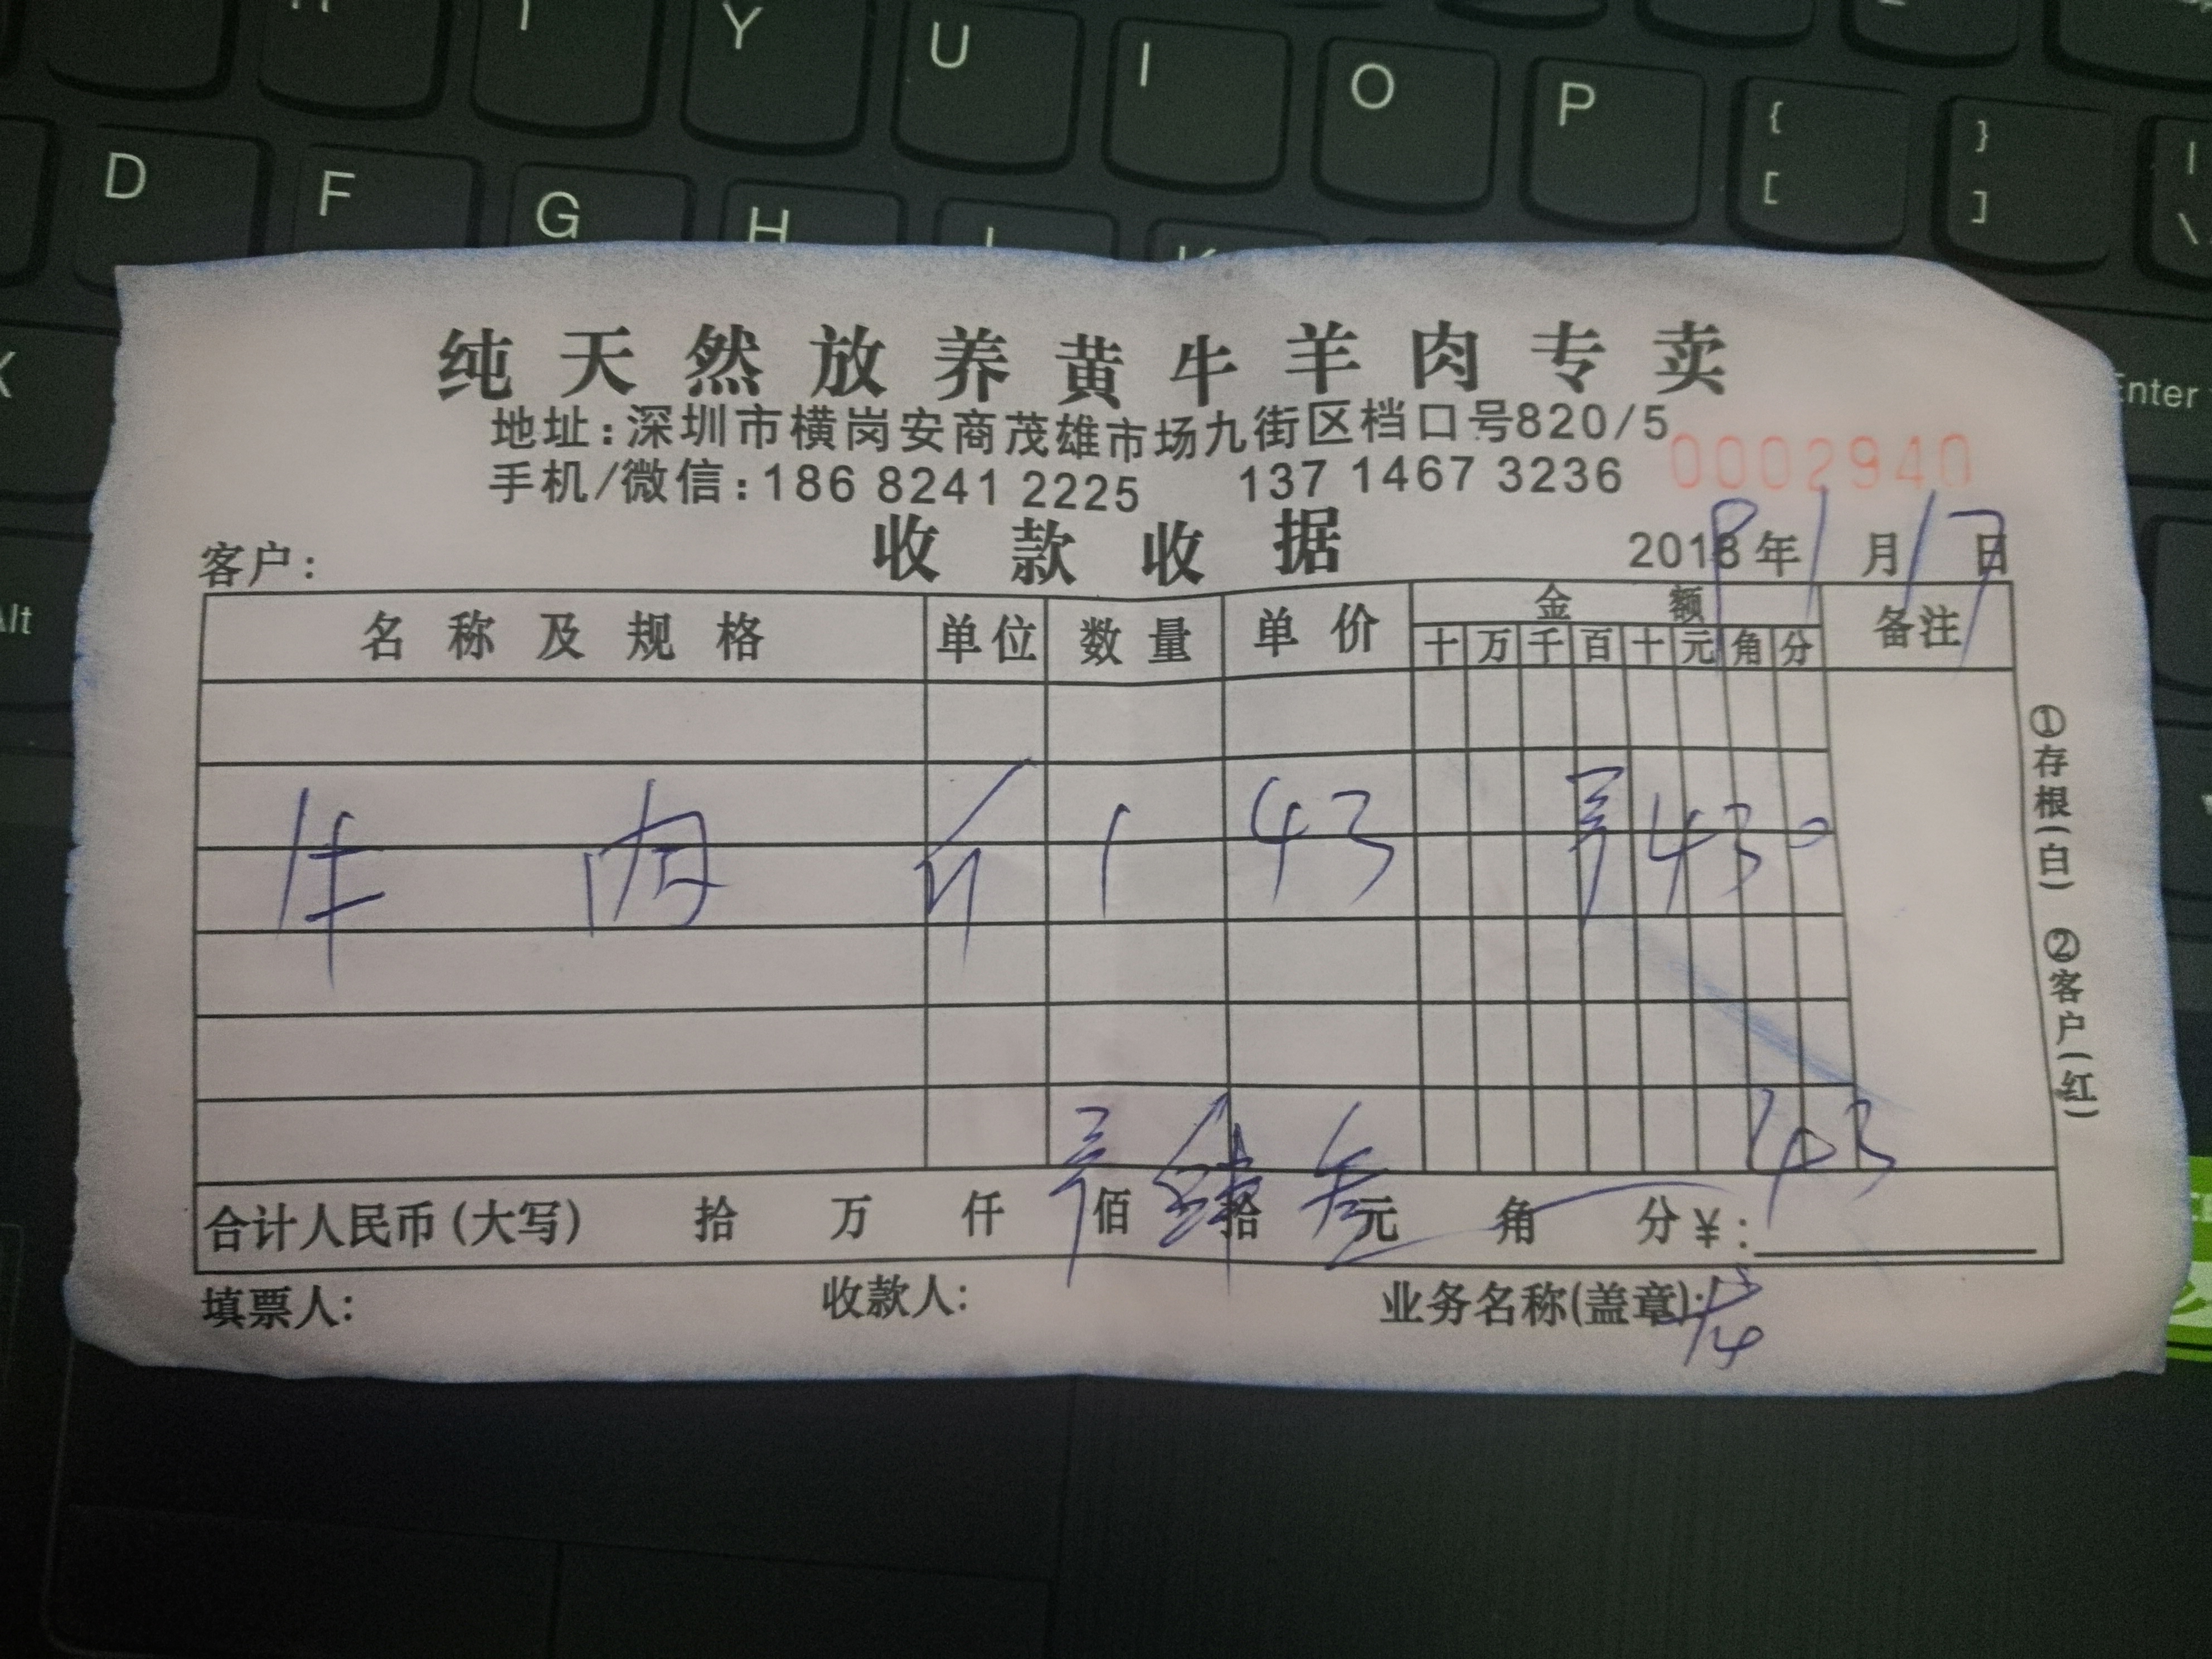 Y U I O P { [ } ] | \
D F G H J K
X Enter
Alt
纯天然放养黄牛羊肉专卖
地址:深圳市横岗安商茂雄市场九街区档口号820/5
手机/微信:186 8241 2225 137 1467 3236 0002940
收款收据
客户: 2018年1月17日
名称及规格 单位 数量 单价 金额 备注
十 万 千 百 十 元 角 分
牛肉 斤 1 43 430
43
合计人民币(大写) 拾 万 仟 佰 肆拾 叁元 角 分¥:
填票人: 收款人: 业务名称(盖章):
①存根(白) ②客户(红)